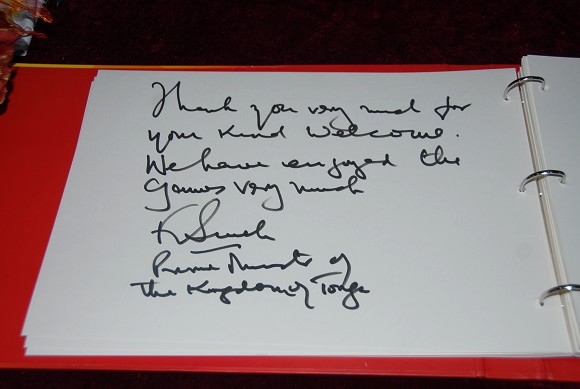 Thank you very much for
your kind welcome.
We have enjoyed the
Games very much
Prime Minister of
The Kingdom of Tonga